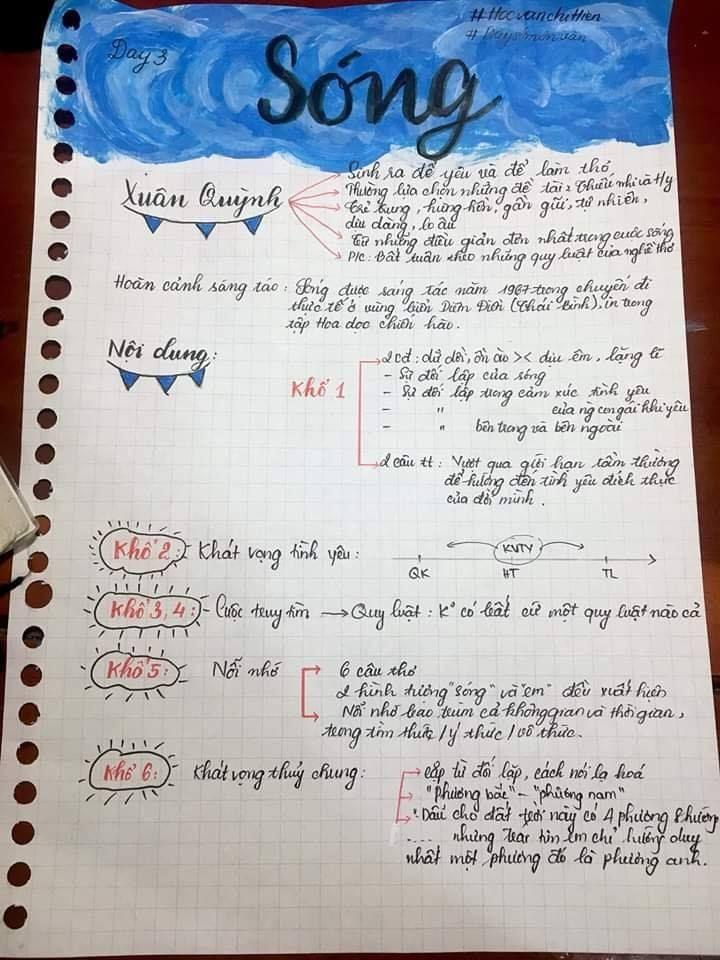 #Hocvanchihien
Day 3
#Daysmônvăn
Sóng
Xuân Quỳnh
Sinh ra để yêu và để làm thơ
Thường lựa chọn những đề tài: Thiếu nhi và Hp
Trẻ trung, hồn nhiên, gần gũi, tự nhiên,
dịu dàng, lo âu
Từ những điều giản đơn nhất trong cuộc sống
P/c: Bất tuân theo những quy luật của nghề thơ
Hoàn cảnh sáng táo: Sóng được sáng tác năm 1967 trong chuyến đi
thực tế ở vùng biển Diêm Điền (Thái Bình), in trong
tập Hoa dọc chiến hào.
Nội dung:
Khổ 1
2 cđ: dữ dội, ồn ào >< dịu êm, lặng lẽ
- Sự đối lập của sóng
- Sự đối lập trong cảm xúc tình yêu
- " của ng con gái khi yêu
- " bên trong và bên ngoài
2 câu tt: Vượt qua giới hạn tầm thường
để hướng đến tình yêu đích thực
của đời mình.
Khổ 2: Khát vọng tình yêu:
KVTY
QK HT TL
Khổ 3, 4: Cuộc truy tìm → Quy luật: K° có bất cứ một quy luật nào cả
Khổ 5: Nỗi nhớ
6 câu thơ
2 hình tượng "sóng" và "em" đều xuất hiện
Nỗi nhớ bao trùm cả không gian và thời gian,
trong tiềm thức / ý thức / vô thức.
Khổ 6: Khát vọng thuỷ chung:
cặp từ đối lập, cách nói lạ hoá
"phương bắc" - "phương nam"
Dẫu cho đất trời này có 4 phương 8 hướng
.... nhưng trái tim em chỉ hướng duy
nhất một phương đó là phương anh.